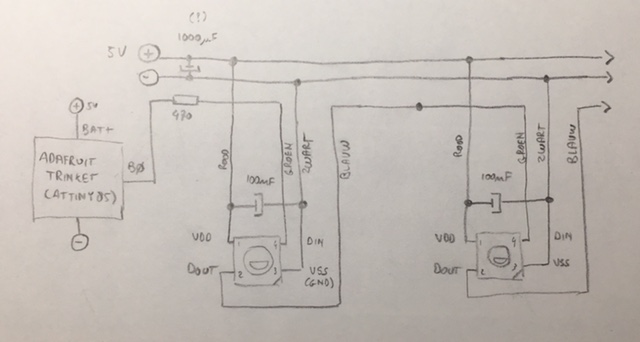 (!)
1000µF
5V +
-
+ 5V
BAT+
470
ADAFRUIT
TRINKET
(ATTINY85)
BØ
-
ROOD
GROEN
ZWART
BLAUW
100mF
VDD
1
4
DIN
DOUT
2
3
VSS
(GND)
ROOD
GROEN
ZWART
BLAUW
100mF
VDD
1
4
DIN
DOUT
2
3
VSS